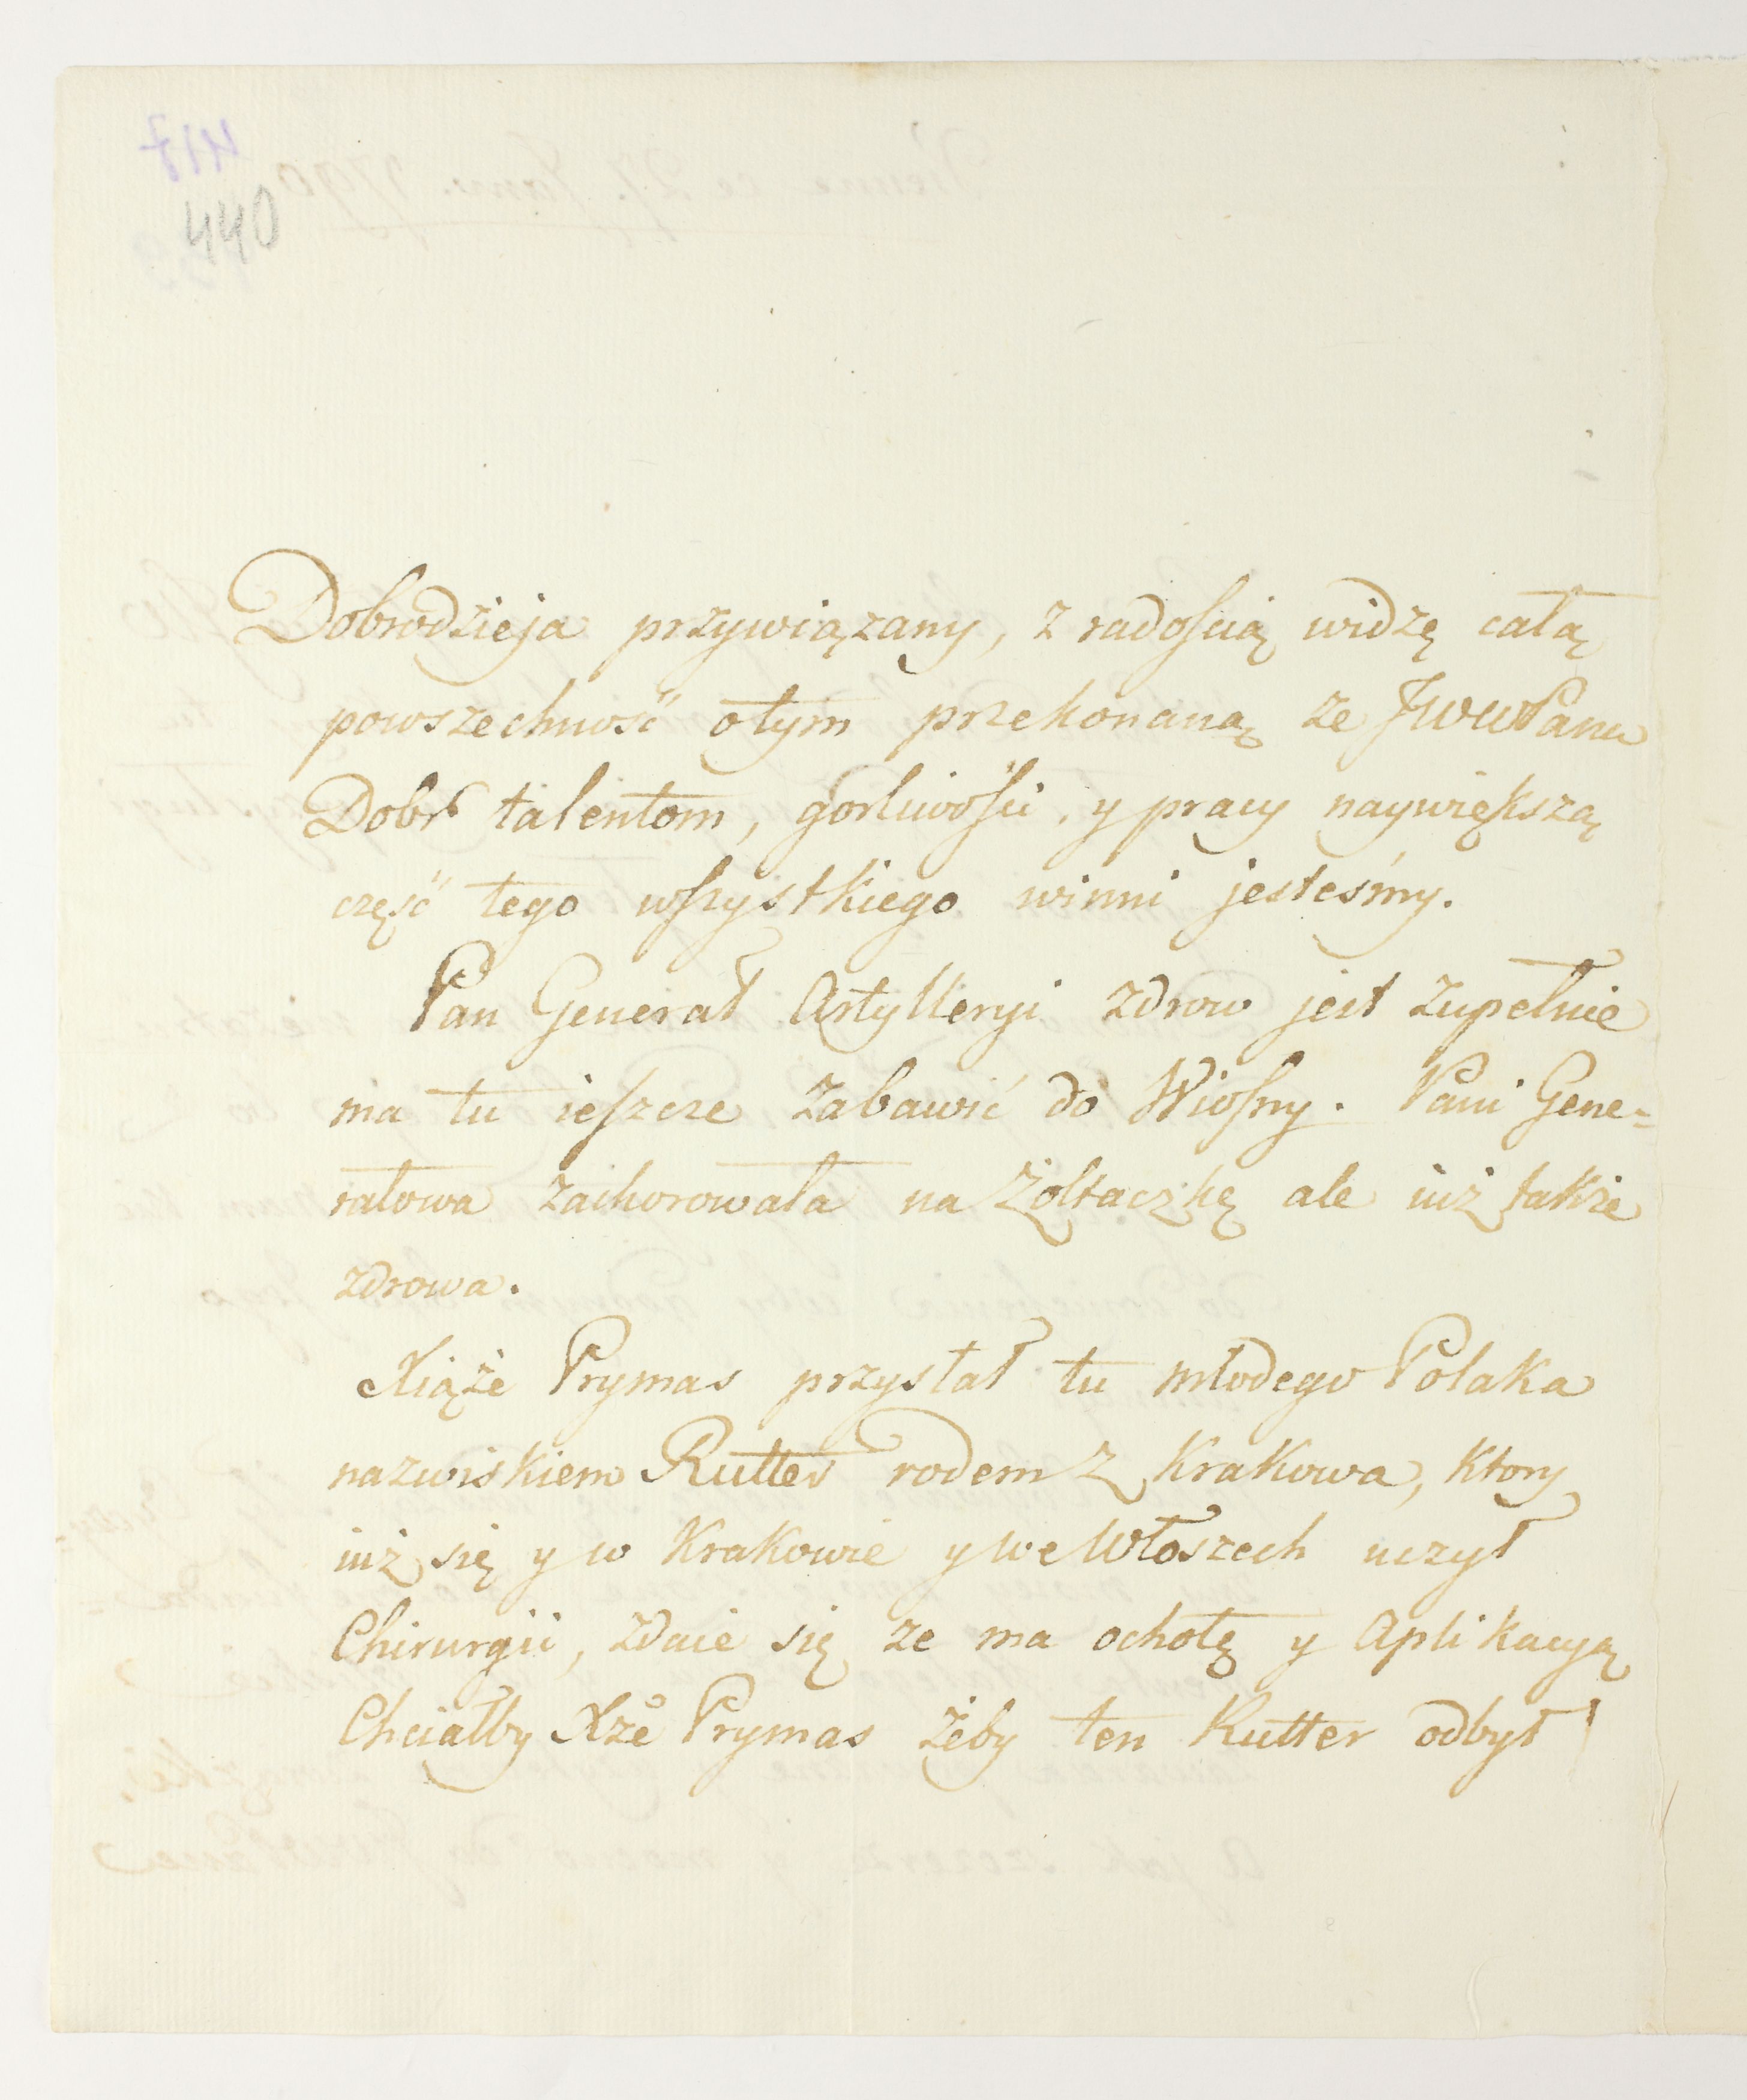 440
Dobrodzieja przywiązany, z radością widzę całą
powszechność o tym przekonaną ze JWWPana
Dobr talentom, gorliwości, y pracy naywiększą
część tego wszystkiego winni jesteśmy.
Pan Generał Artylleryi zdrow jest zupełnie
ma tu ieszcze zabawić do Wiosny. Pani Gene=
rałowa zachorowała na Żołtaczkę ale iuż także
zdrowa.
Xiąże Prymas przysłał tu młodego Polaka
nazwiskiem Rutter rodem z Krakowa, ktory
iuż się y w Krakowie y we Włoszech uczył
Chirurgii, zdaie się ze ma ochotę y Aplikacyą
Chciałby Xże Prymas żeby ten Rutter odbył